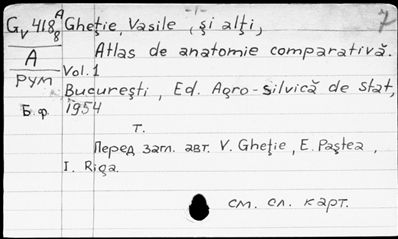 -1-
Gv 418 8 A Gheție, Vasile, și alți, 7
A Atlas de anatomie comparativă.
Рум Vol. 1
București, Ed. Agro-silvică de stat,
Б.ф. 1954
т.
Перед загл. авт. V. Gheție, E. Paștea,
I. Riga.
см. сл. карт.